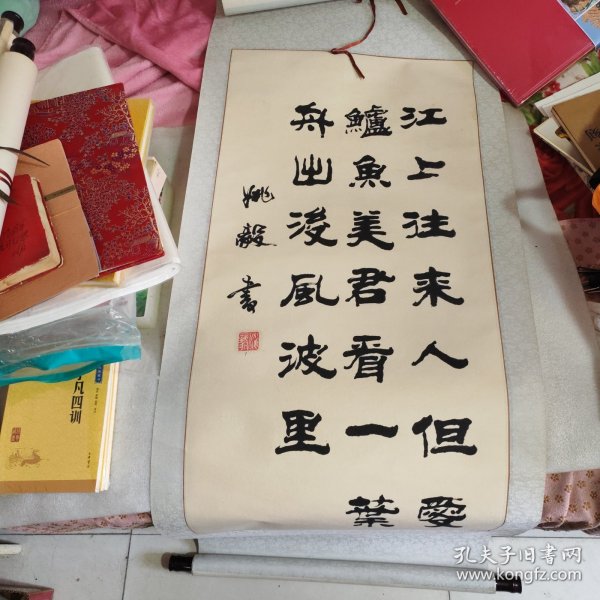 江上往来人但愛
鱸魚美君看一葉
舟出没風波里
姚毅書
凡四训
孔夫子旧书网
www.kongfz.com